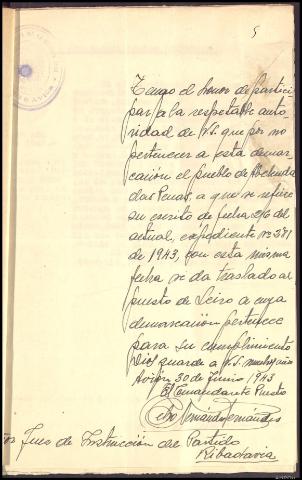 5
Tengo el honor de partici
par a la respetable auto
ridad de V.S. que por no
pertenecer a esta demar
cación el pueblo de Abelenda
das Penas, a que se refiere
su escrito de fecha 26 del
actual, expediente nº 381
de 1943, con esta misma
fecha se da traslado al
puesto de Leiro a cuya
demarcación pertenece
para su cumplimiento
Dios guarde a V.S. muchos años
Avión 30 de Junio 1943
El Comandante Puesto
Fernández
Juez de Instrucción del Partido
Ribadavia